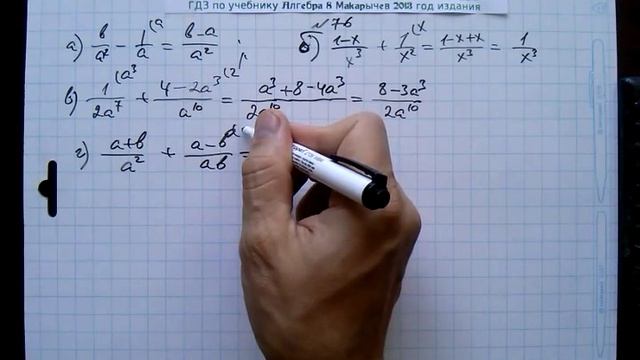 ГДЗ по учебнику Алгебра 8 Макарычев 2013 год издания
№76
а) b/a² - 1/a (a = b-a/a² ; б) 1-x/x³ + 1/x² (x = 1-x+x/x³ = 1/x³
в) 1/2a⁷ (a³ + 4-2a³/a¹⁰ (2 = a³+8-4a³/2a¹⁰ = 8-3a³/2a¹⁰
г) a+b/a² + a-b/ab =